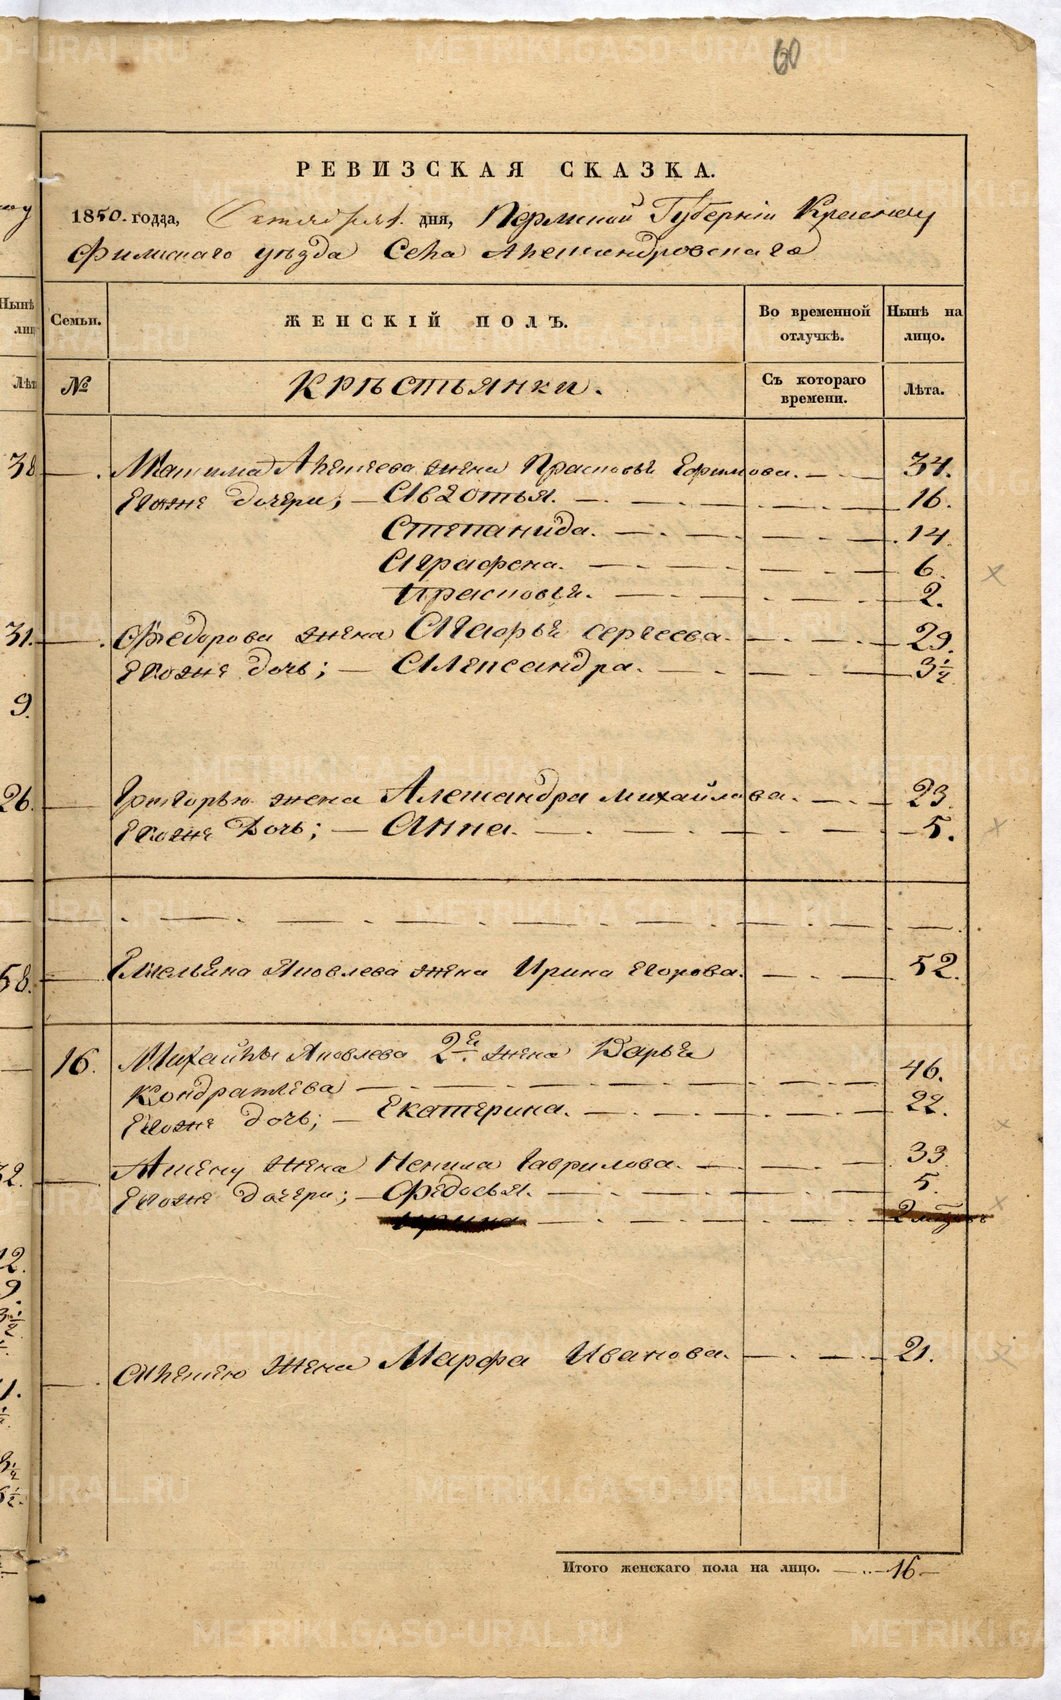 60
РЕВИЗСКАЯ СКАЗКА.
1850. года, Октября 1. дня, Пермской Губернiи Красноу
фимскаго уезда Села Александровскаго
Семьи.
ЖЕНСКІЙ ПОЛЪ.
Во временной отлучкѣ.
Нынѣ на лицо.
№
Крѣстьянки.
Съ котораго времени.
Лѣта.
Максима Алексеева жена Прасковья Ефимова. 34.
Егоже дочери; Авдотья. 16.
Степанида. 14.
Аграфена. 6.
Прасковья. 2.
Федорова жена Агафья Сергеева. 29.
Егоже дочь; Александра. 3½
Григорью жена Александра Михайлова. 23.
Егоже Дочь; Анна. 5.
Емельяна Яковлева жена Ирина Егорова. 52.
16. Михайлы Яковлева 2я. жена Дарья
Кондратьева 46.
Егоже дочь; Екатерина. 22.
жена Ненила Гаврилова. 33.
Егоже дочери; Федосья. 5.
Алексею жена Марфа Иванова. 21.
Итого женскаго пола на лицо. 16
38
31.
9.
26.
58.
32.
METRIKI.GASO-URAL.RU